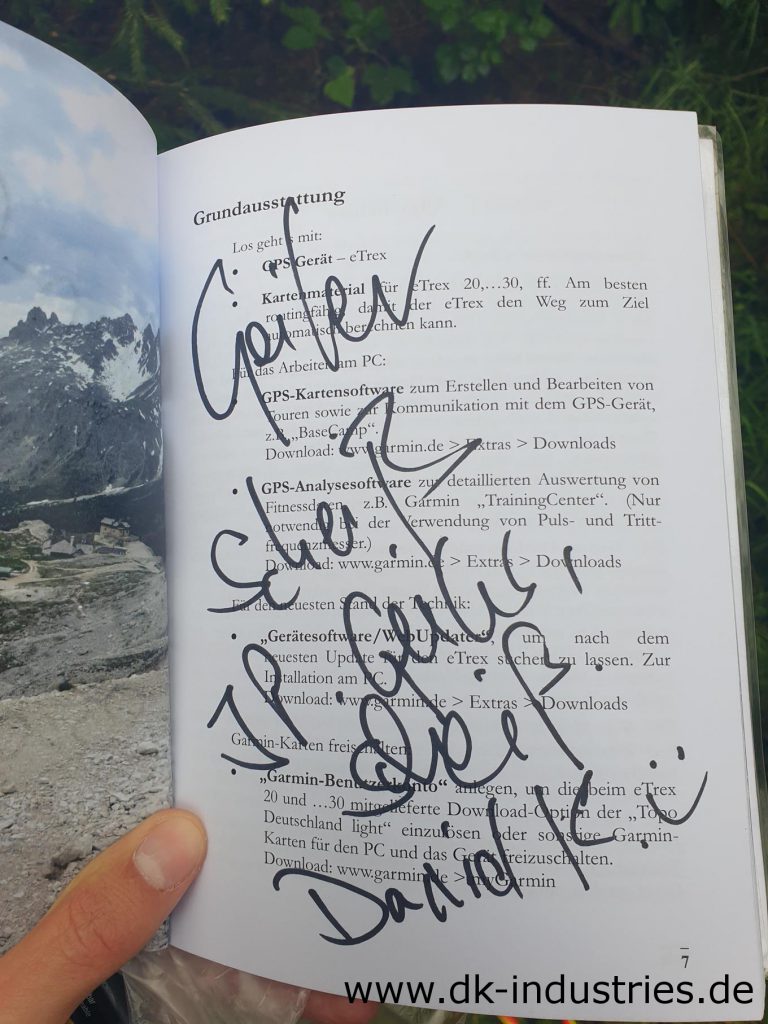 Grundausstattung
Los geht's mit:
• GPS Gerät – eTrex
Kartenmaterial für eTrex 20,…30, ff. Am besten
routingfähig, damit der eTrex den Weg zum Ziel
automatisch berechnen kann.
Für das Arbeiten am PC:
GPS-Kartensoftware zum Erstellen und Bearbeiten von
Touren sowie zur Kommunikation mit dem GPS-Gerät,
z.B. „BaseCamp“.
Download: www.garmin.de > Extras > Downloads
• GPS-Analysesoftware zur detaillierten Auswertung von
Fitnessdaten, z.B. Garmin „TrainingCenter“. (Nur
notwendig bei der Verwendung von Puls- und Tritt-
frequenzmesser.)
Download: www.garmin.de > Extras > Downloads
Für den neuesten Stand der Technik:
• „Gerätesoftware/WebUpdater“, um nach dem
neuesten Update für den eTrex suchen zu lassen. Zur
Installation am PC.
Download: www.garmin.de > Extras > Downloads
Garmin-Karten freischalten
„Garmin-Benutzerkonto“ anlegen, um die beim eTrex
20 und …30 mitgelieferte Download-Option der „Topo
Deutschland light“ einzulösen oder sonstige Garmin-
Karten für den PC und das Gerät freizuschalten.
Download: www.garmin.de > myGarmin
7
Geiler
Scheiß
Daniel K.
www.dk-industries.de